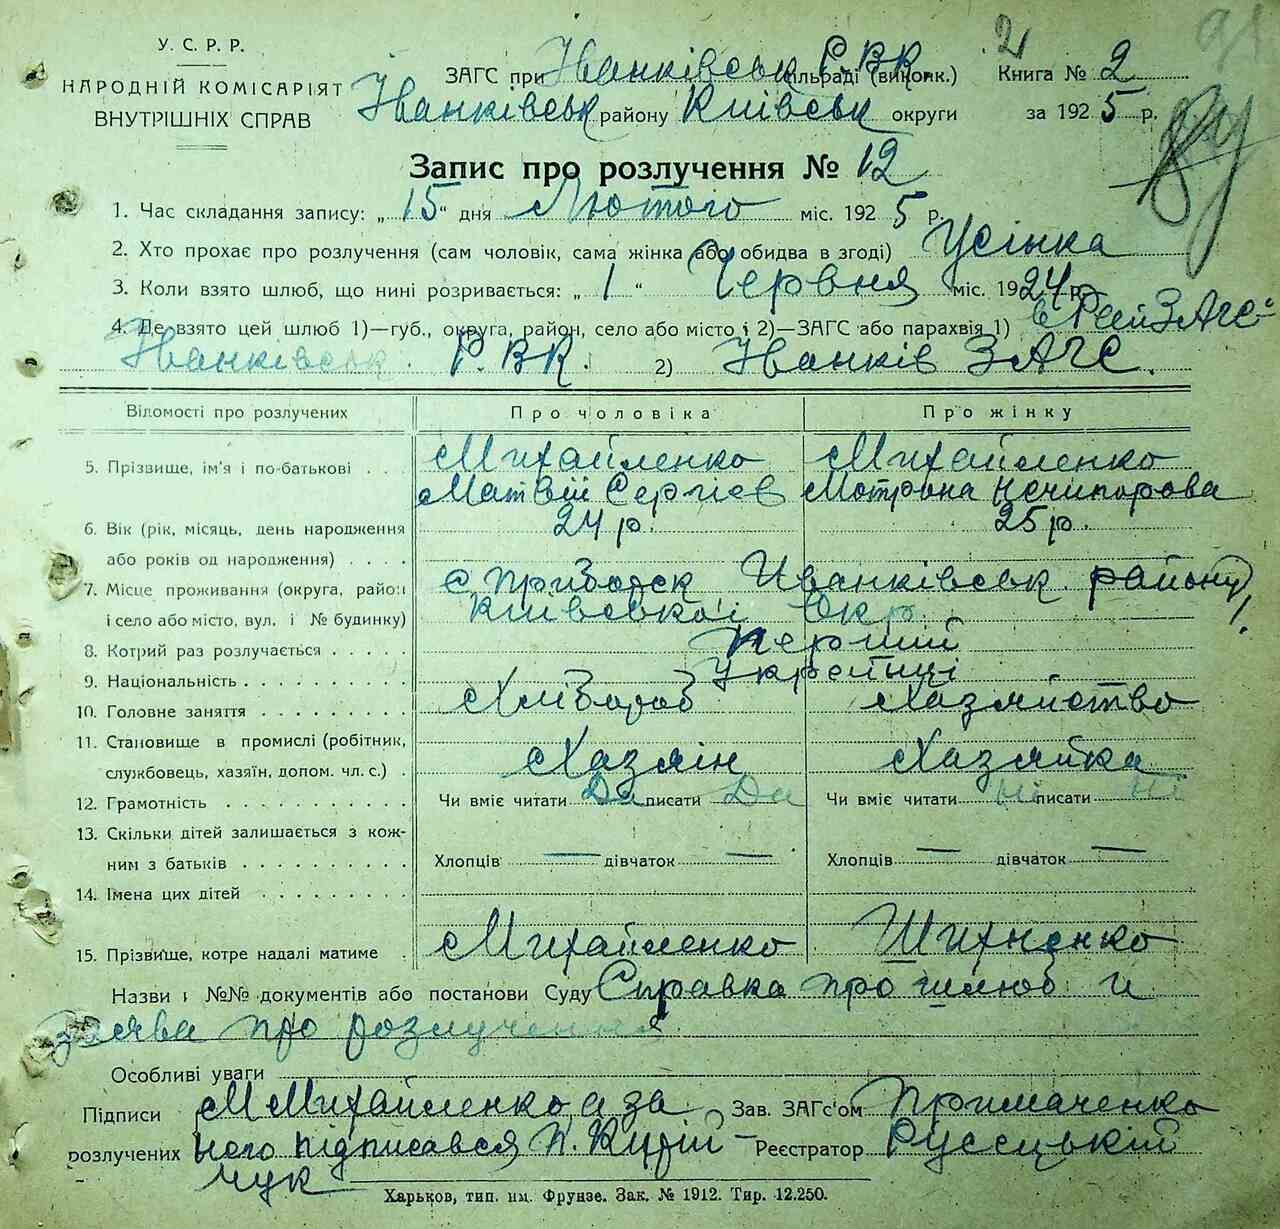 У. С. Р. Р.
НАРОДНІЙ КОМІСАРІЯТ
ВНУТРІШНІХ СПРАВ
ЗАГС при Іванківськ Р.ВК. сільраді (виконк.) Книга № 2
Іванківськ району Київськ округи за 1925 р.
Запис про розлучення № 12
1. Час складання запису: „15“ дня Лютого міс. 1925 р.
2. Хто прохає про розлучення (сам чоловік, сама жінка або обидва в згоді)
3. Коли взято шлюб, що нині розривається: „1“ Червня міс. 1924 р.
4. Де взято цей шлюб 1)—губ., округа, район, село або місто і 2)—ЗАГС або парахвія 1) в РайЗАГС
Іванківськ. Р. ВК. 2) Іванків ЗАГС.
Відомості про розлучених Про чоловіка Про жінку
5. Прізвище, ім'я і по-батькові . . . Михайленко Михайленко
Матвій Сергієв Мотрона Нечипорова
6. Вік (рік, місяць, день народження 24 р. 25 р.
або років од народження) . . . .
7. Місце проживання (округа, район с. Приборск Иванківськ району
і село або місто, вул. і № будинку) Київської Окр.
8. Котрий раз розлучається . . . . . Перший
9. Національність . . . . . . . . . . Українці
10. Головне заняття . . . . . . . . . Хлібороб Хазяйство
11. Становище в промислі (робітник,
службовець, хазяїн, допом. чл. с.) . Хазяін Хазяйка
12. Грамотність . . . . . . . . . . . Чи вміє читати Да писати Да Чи вміє читати Ні писати Ні
13. Скільки дітей залишається з кож-
ним з батьків . . . . . . . . . . Хлопців — дівчаток — Хлопців — дівчаток —
14. Імена цих дітей . . . . . . . . .
15. Прізвище, котре надалі матиме . Михайленко Шихненко
Назви і №№ документів або постанови Суду Справка про шлюб и
заява про розлучення
Особливі уваги
Підписи М Михайленко, а за Зав. ЗАГс'ом Примаченко
розлучених него підписався П. Реєстратор Русецький
чук
Харьков, тип. им. Фрунзе. Зак. № 1912. Тир. 12.250.